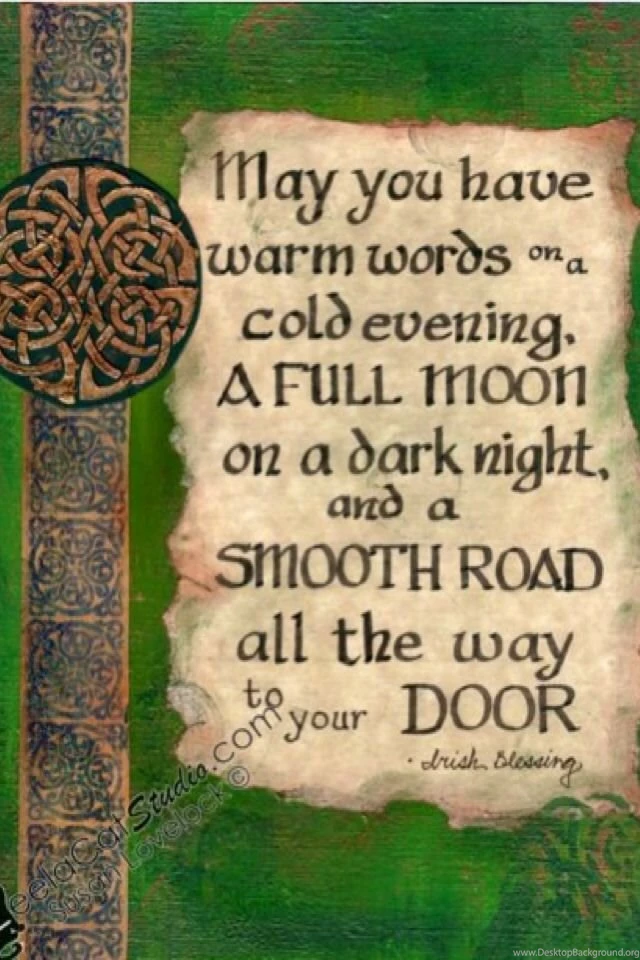 May you have
warm words on a
cold evening,
A FULL MOON
on a dark night,
and a
SMOOTH ROAD
all the way
to your DOOR
· Irish Blessing
eelaCatStudio.com
Susan Lovelock ©
www.DesktopBackground.org